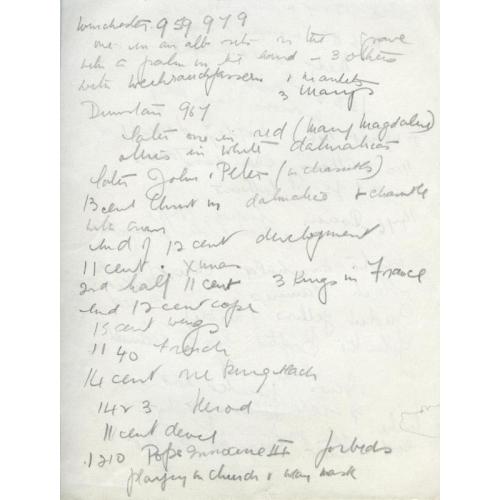 Winchester 959 979
one in an alb sits in the grave
with a palm in his hand - 3 others
with weihrauchfassern & mantels
3 Marys
Dunstan 967
later one in red (Mary Magdalene)
others in white dalmatics
later John & Peter (in chasuble)
13 cent Christ in dalmatic + chasuble
with cross
end of 12 cent development
11 cent. Xmas
2nd half 11 cent 3 Kings in France
end 12 cent cope
15 cent wings
1140 French
14 cent one King black
1423 Herod
11 cent devil
.1210 Pope Innocene III forbids
playing in church & wary mask